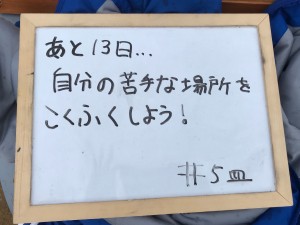 あと13日...
自分の苦手な場所を
こくふくしよう!
#5皿